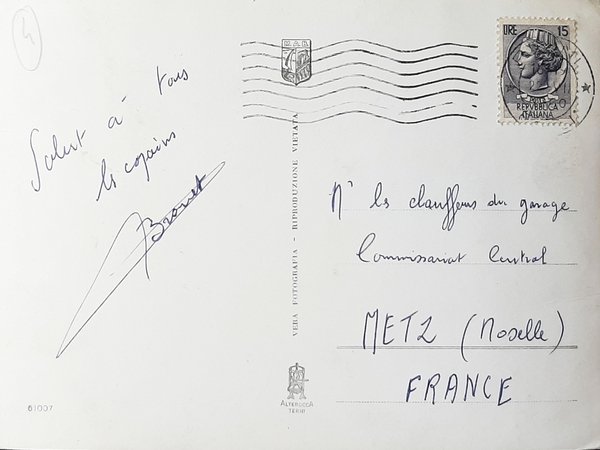 4
Salut à tous
les copains
Brouet
61007
M.A.B.
VERA FOTOGRAFIA - RIPRODUZIONE VIETATA
ALTEROCCA
TERNI
LIRE 15
REPVBBLICA
ITALIANA
Mrs les chauffeurs du garage
Commissariat Central
METZ (Moselle)
FRANCE